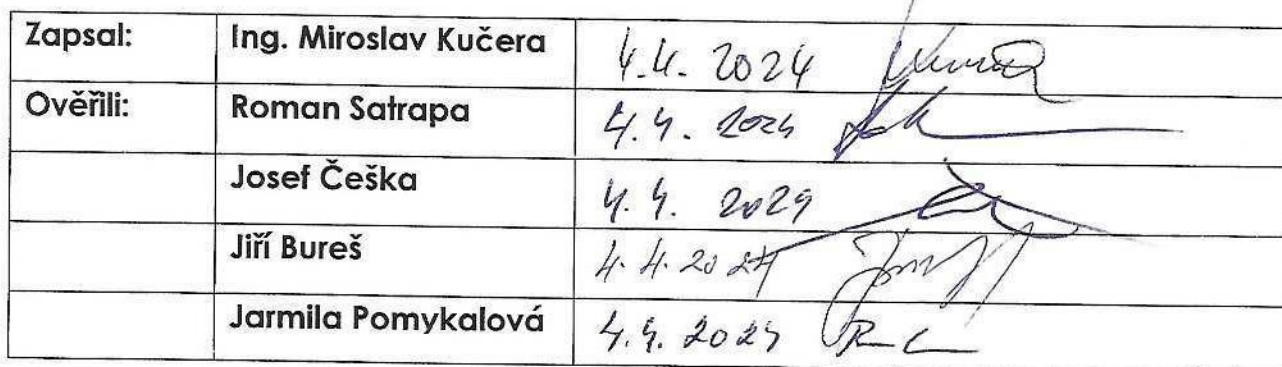 Zapsal: Ing. Miroslav Kučera 4.4. 2024
Ověřili: Roman Satrapa 4.4. 2024
Josef Češka 4.4. 2024
Jiří Bureš 4.4.2024
Jarmila Pomykalová 4.4.2024